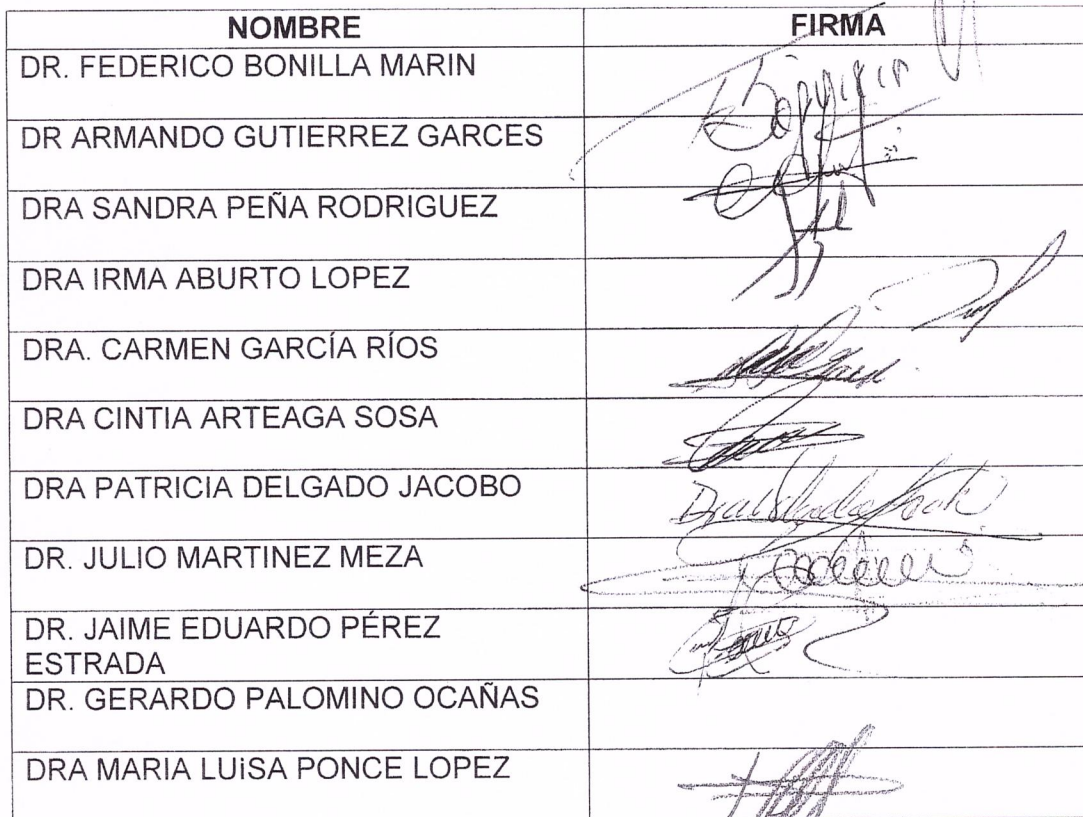 NOMBRE FIRMA
DR. FEDERICO BONILLA MARIN
DR ARMANDO GUTIERREZ GARCES
DRA SANDRA PEÑA RODRIGUEZ
DRA IRMA ABURTO LOPEZ
DRA. CARMEN GARCÍA RÍOS
DRA CINTIA ARTEAGA SOSA
DRA PATRICIA DELGADO JACOBO
DR. JULIO MARTINEZ MEZA
DR. JAIME EDUARDO PÉREZ
ESTRADA
DR. GERARDO PALOMINO OCAÑAS
DRA MARIA LUiSA PONCE LOPEZ